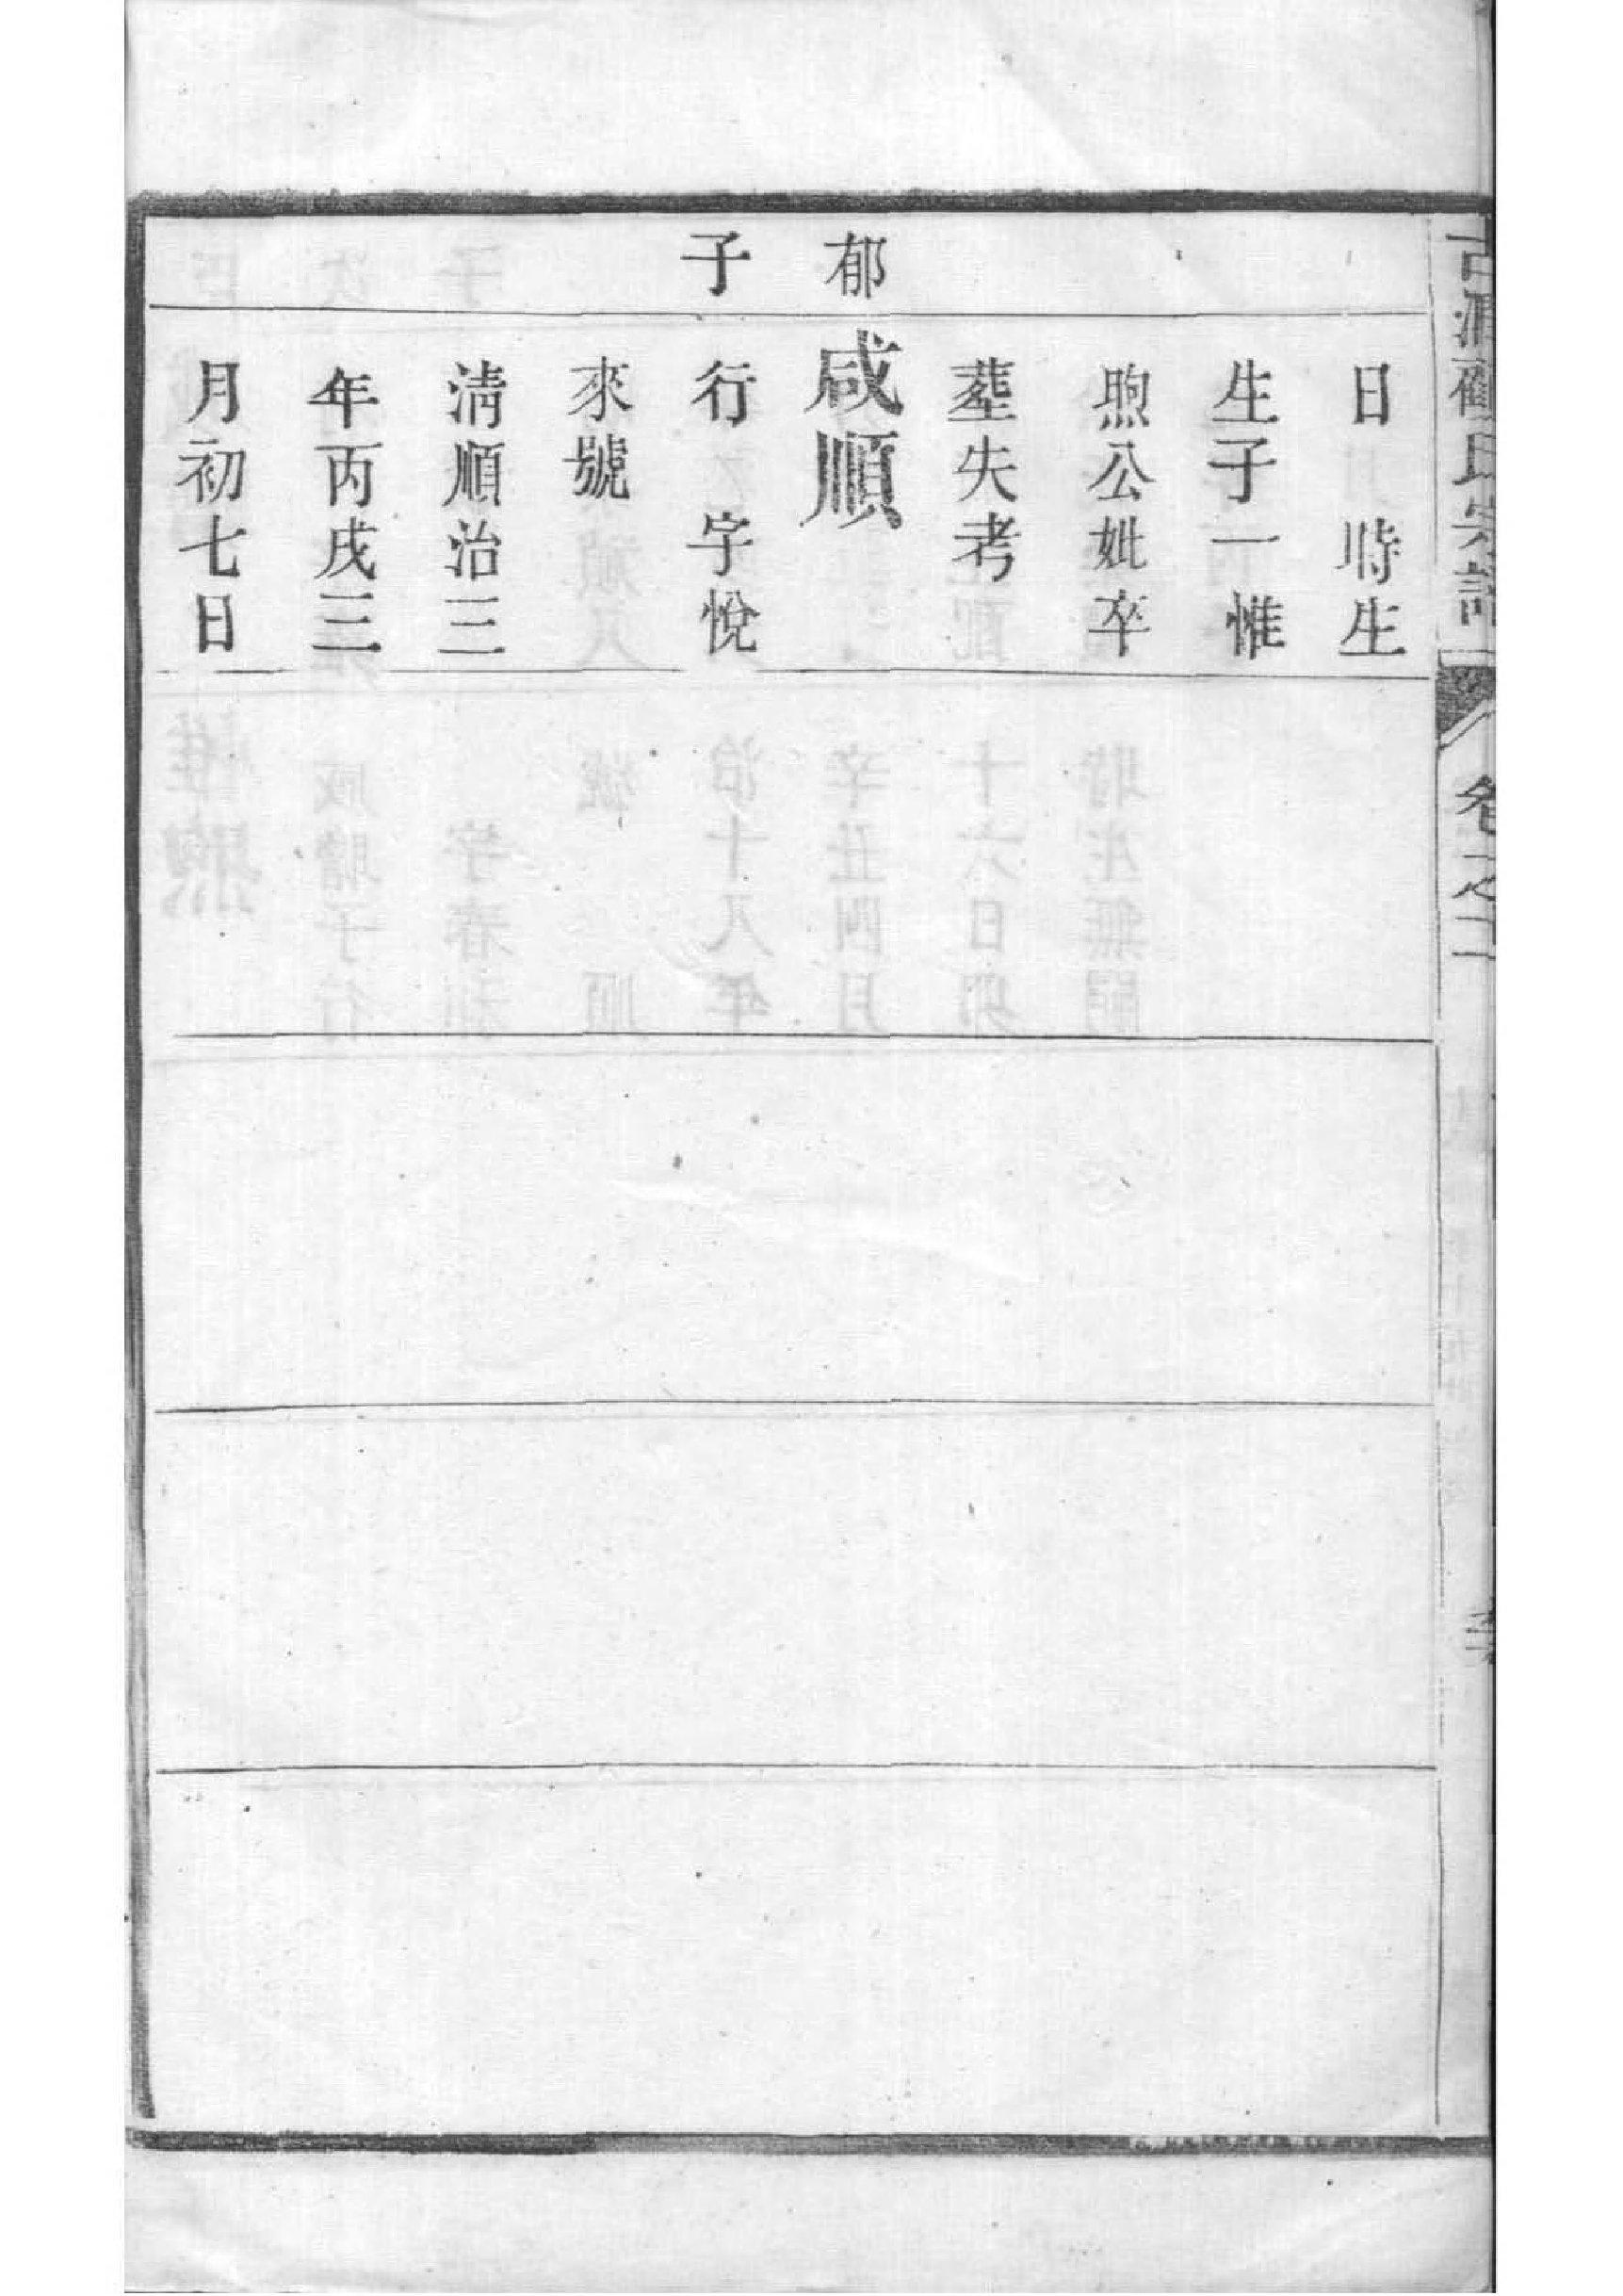 氏宗譜
卷之二
日 時生
生子一惟
煦公妣卒
塟失考
郁
咸順
子
行 字悅
來號
淸順治三
年丙戌三
月初七日